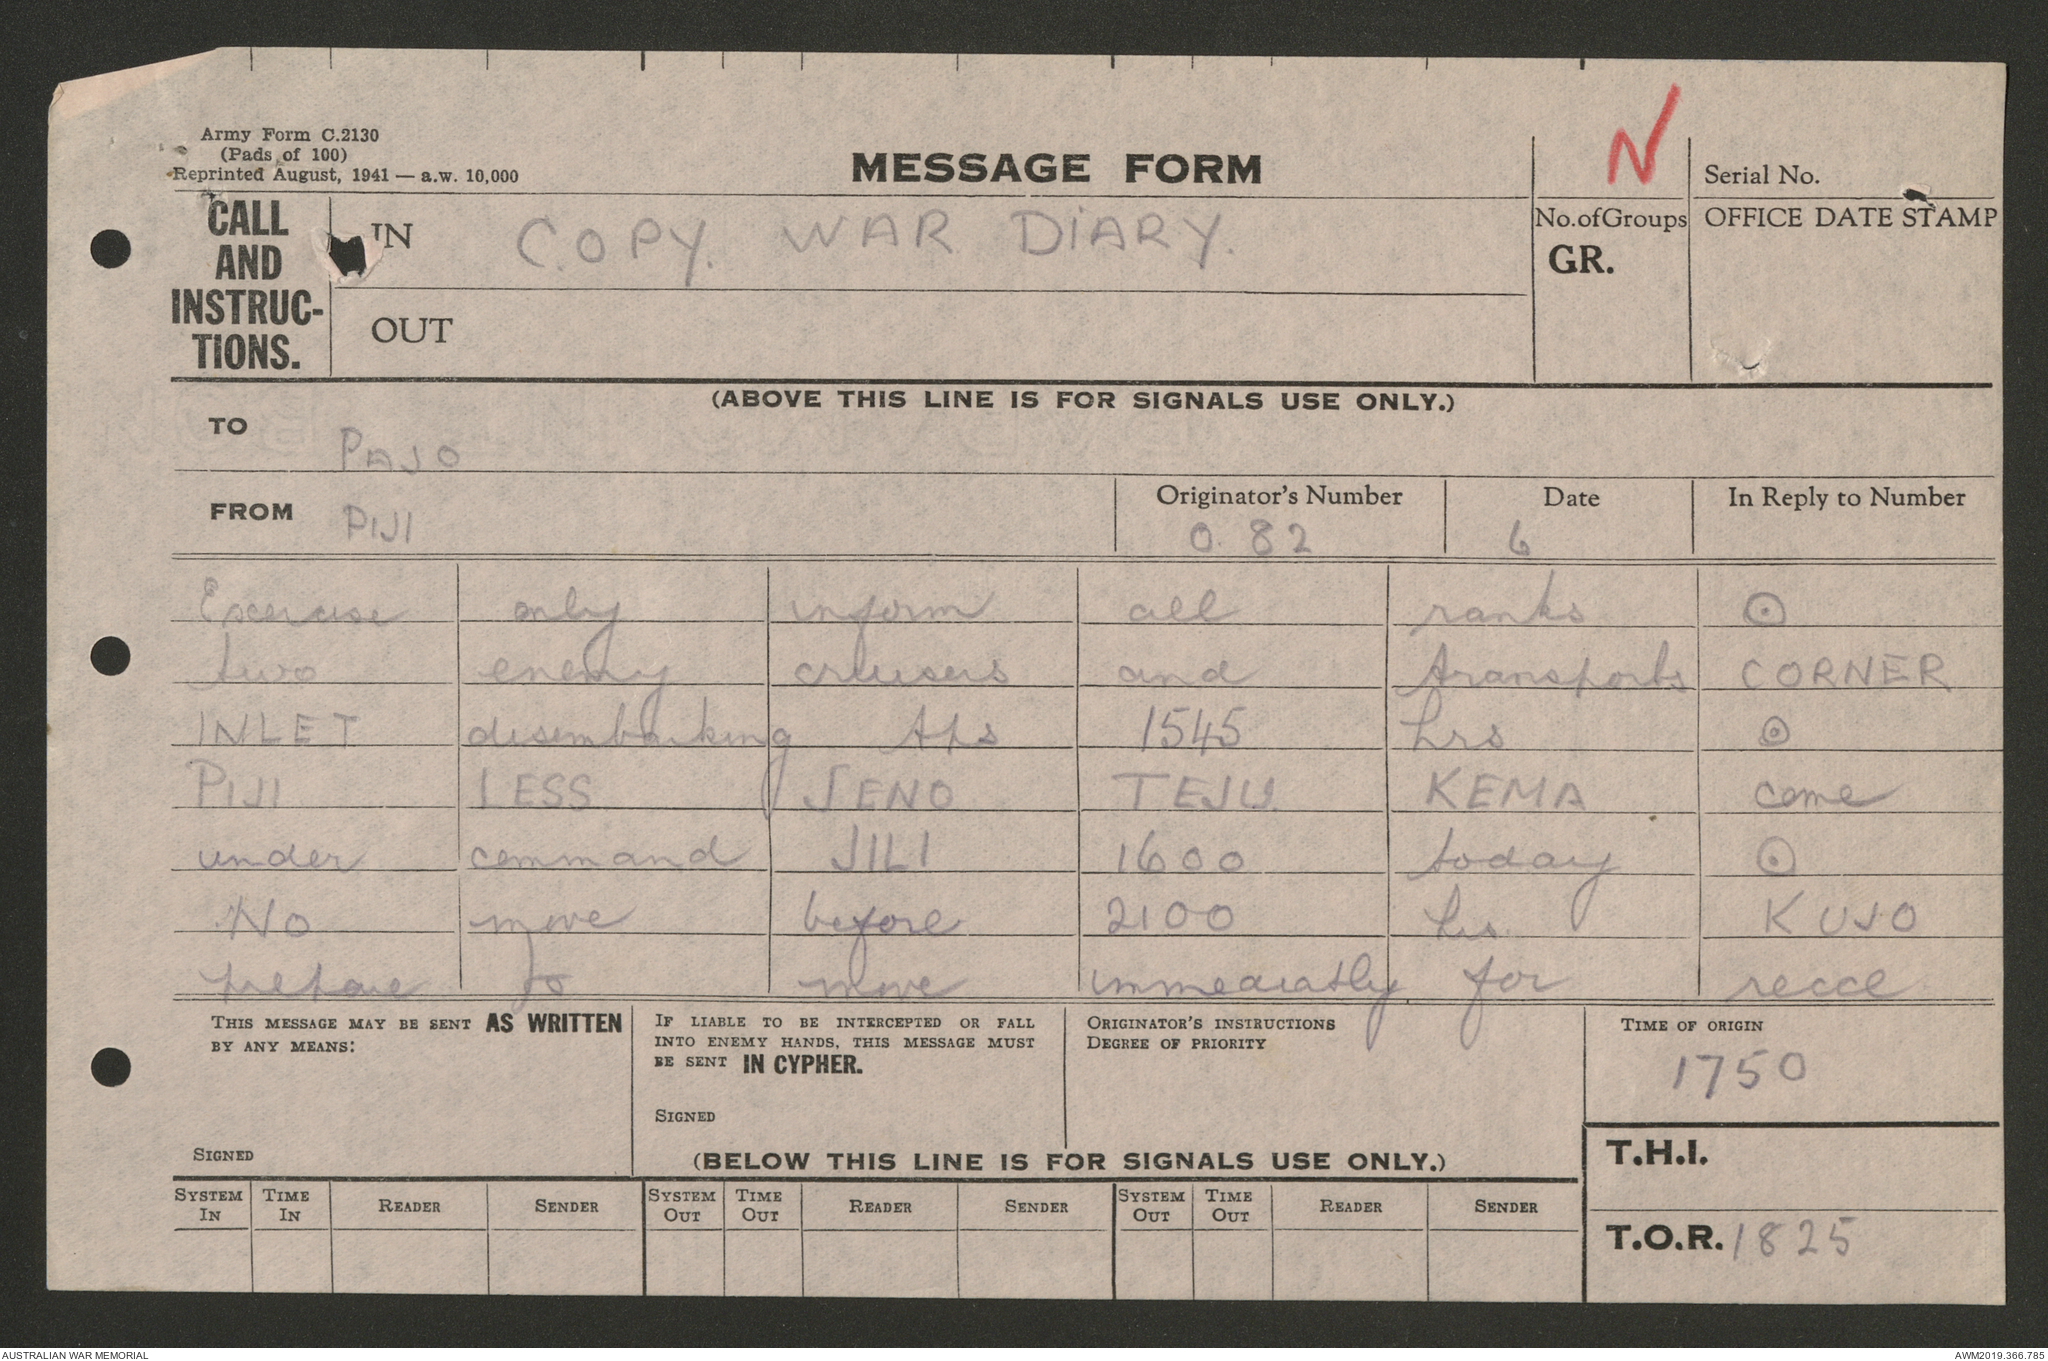 Army Form C.2130
(Pads of 100)
Reprinted August, 1941 — a.w. 10,000
MESSAGE FORM
N
Serial No.
CALL AND INSTRUC-TIONS.
IN COPY. WAR DIARY.
OUT
No. of Groups
GR.
OFFICE DATE STAMP
(ABOVE THIS LINE IS FOR SIGNALS USE ONLY.)
TO PAJO
FROM PIJI
Originator's Number 0.82
Date 6
In Reply to Number
Exercise only inform all ranks ⊙
two enemy cruisers and transports CORNER
INLET disembarking tps 1545 hrs ⊙
PIJI LESS SENO TEJU KEMA come
under command JILI 1600 today ⊙
No move before 2100 hrs KUJO
prepare to move immediatly for recce
THIS MESSAGE MAY BE SENT AS WRITTEN
BY ANY MEANS:
SIGNED
IF LIABLE TO BE INTERCEPTED OR FALL
INTO ENEMY HANDS, THIS MESSAGE MUST
BE SENT IN CYPHER.
SIGNED
ORIGINATOR'S INSTRUCTIONS
DEGREE OF PRIORITY
TIME OF ORIGIN
1750
T.H.I.
(BELOW THIS LINE IS FOR SIGNALS USE ONLY.)
SYSTEM IN TIME IN READER SENDER SYSTEM OUT TIME OUT READER SENDER SYSTEM OUT TIME OUT READER SENDER
T.O.R. 1825
AUSTRALIAN WAR MEMORIAL
AWM2019.366.785